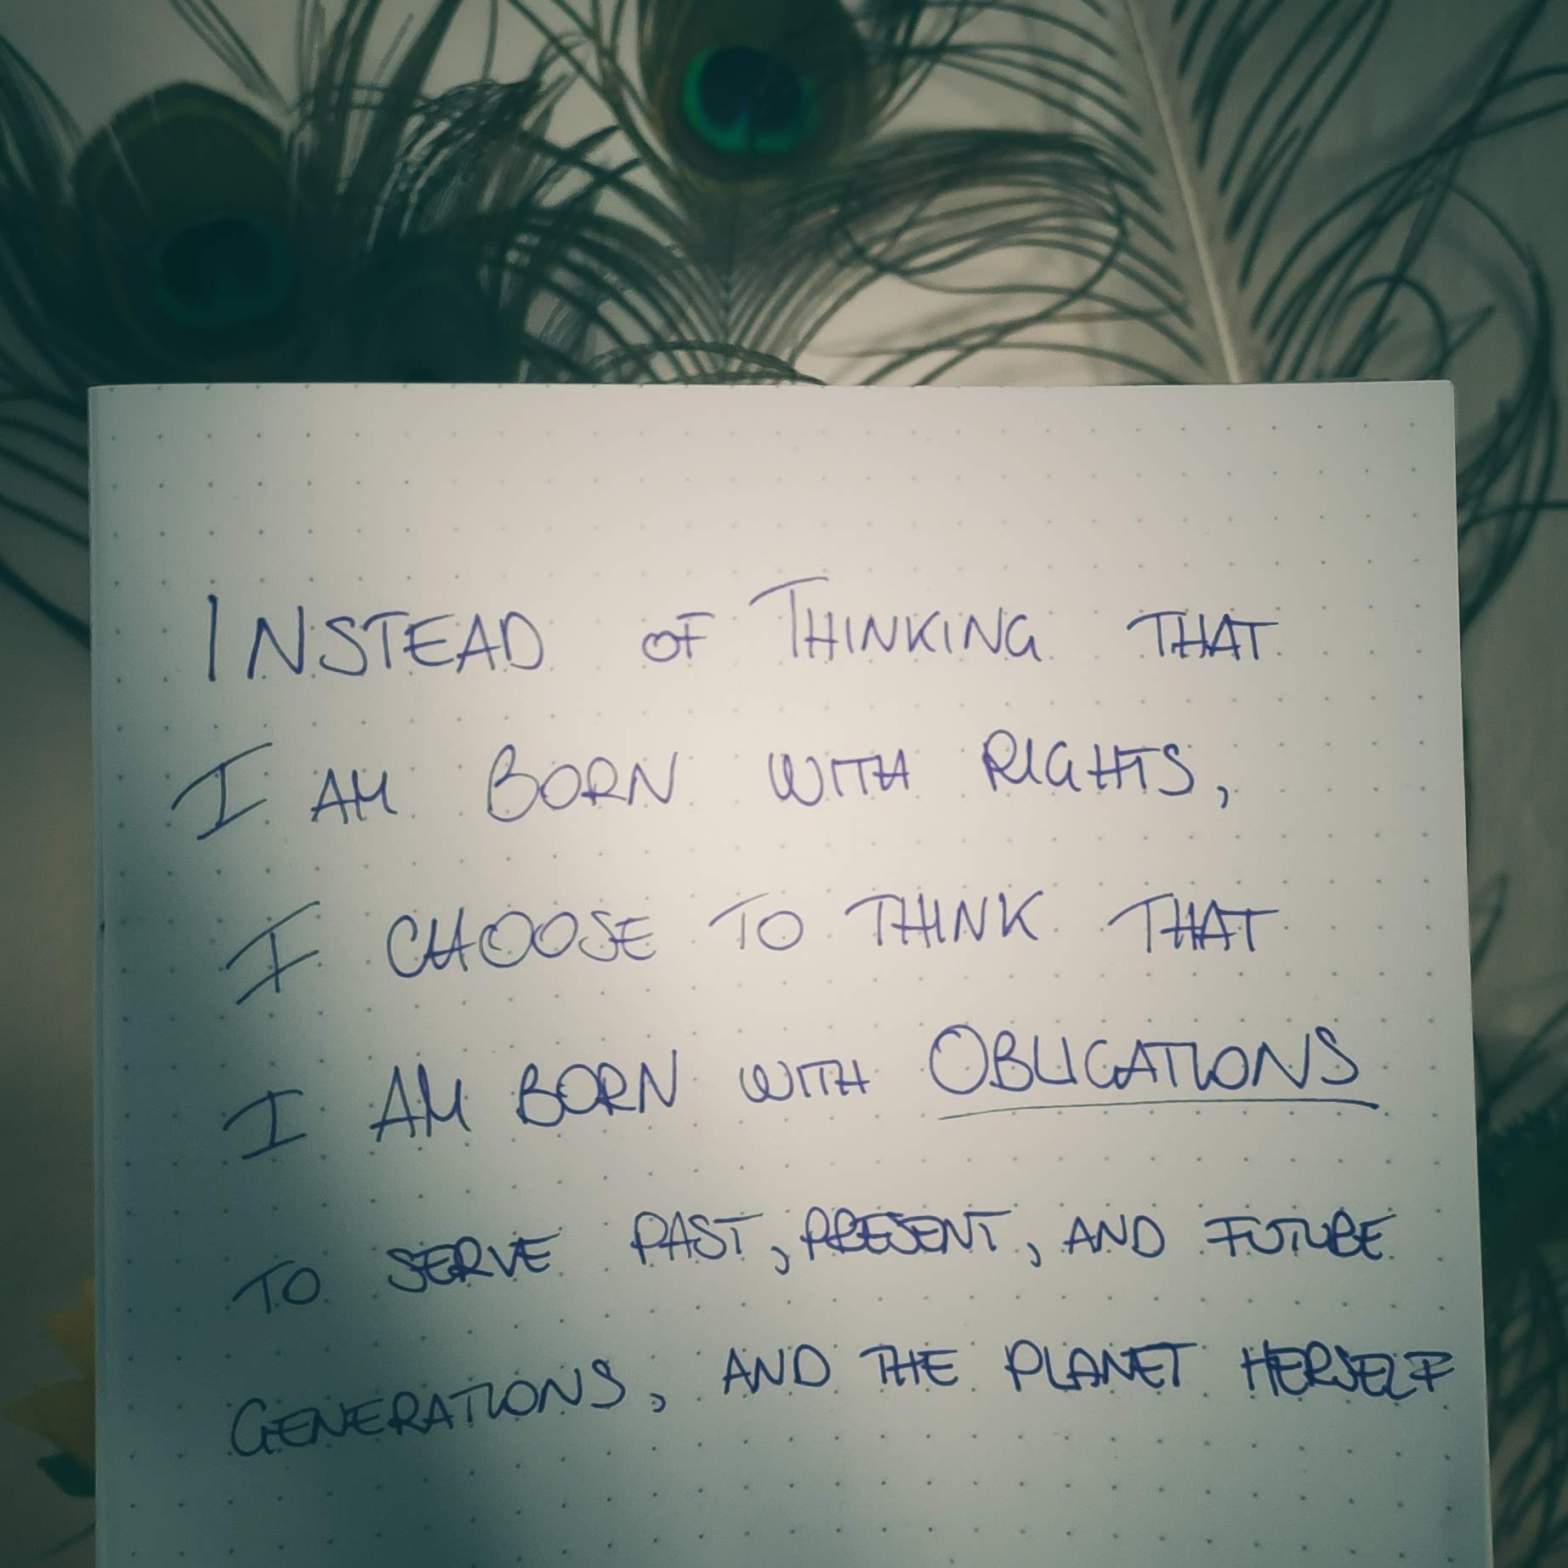 INSTEAD OF THINKING THAT
I AM BORN WITH RIGHTS,
I CHOOSE TO THINK THAT
I AM BORN WITH OBLIGATIONS
TO SERVE PAST, PRESENT, AND FUTURE
GENERATIONS, AND THE PLANET HERSELF